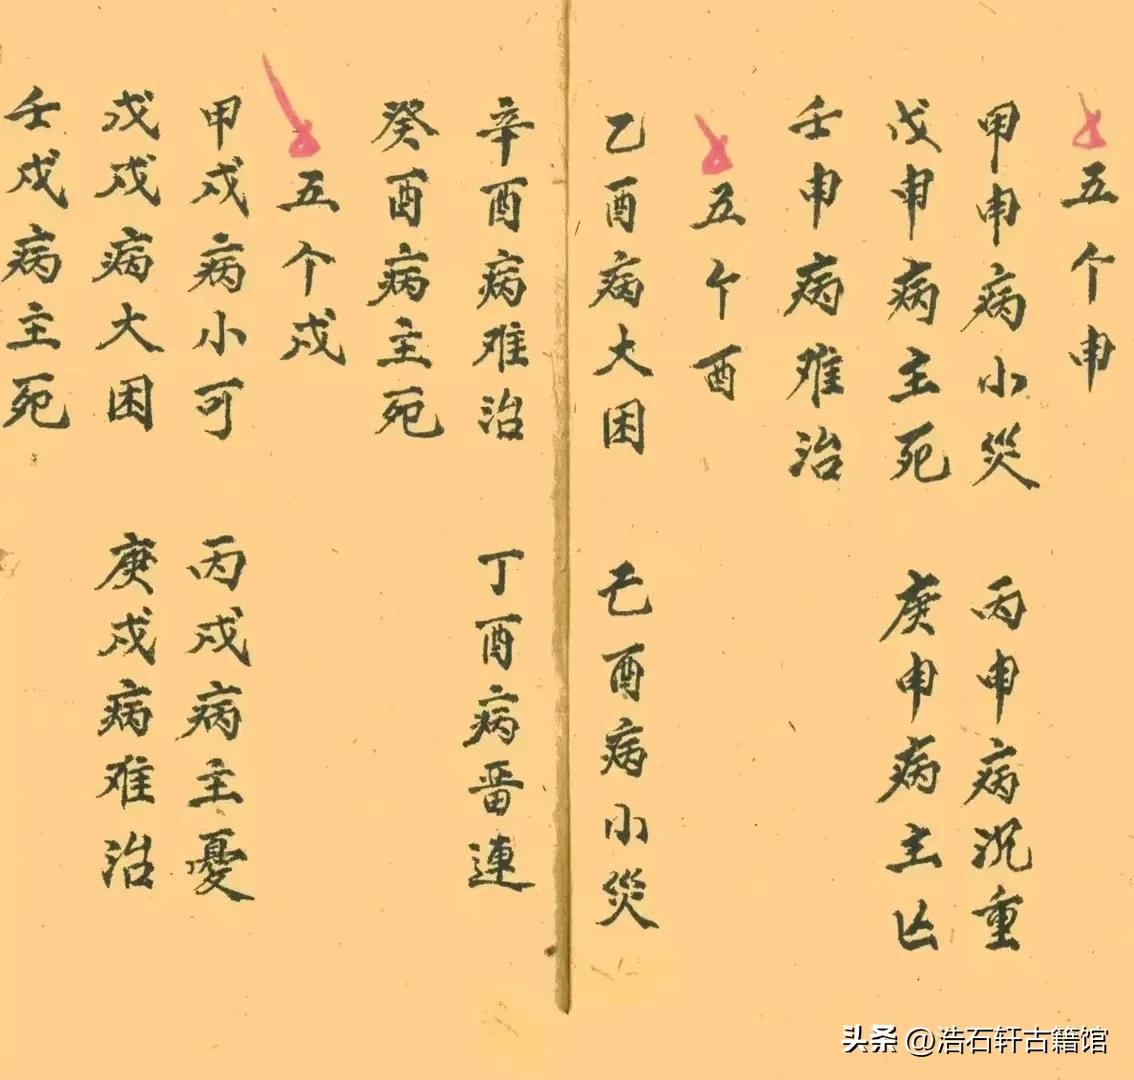 五个申
甲申病小災　丙申病沉重
戊申病主死　庚申病主凶
壬申病难治
五个酉
乙酉病大困　己酉病小災
辛酉病难治　丁酉病畨連
癸酉病主死
五个戌
甲戌病小可　丙戌病主憂
戊戌病大困　庚戌病难治
壬戌病主死
头条 @浩石轩古籍馆